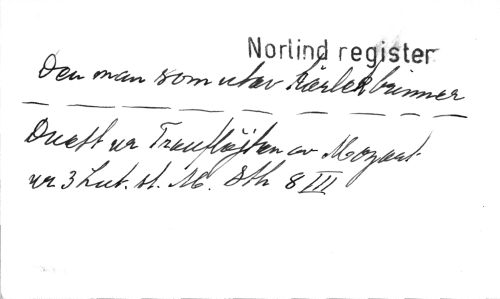 Norlind register
Den man som utav kärlek brinner
Duett ur Trauflöjten av Mozart
ur 3 Lut. st. M. Sth 8 III